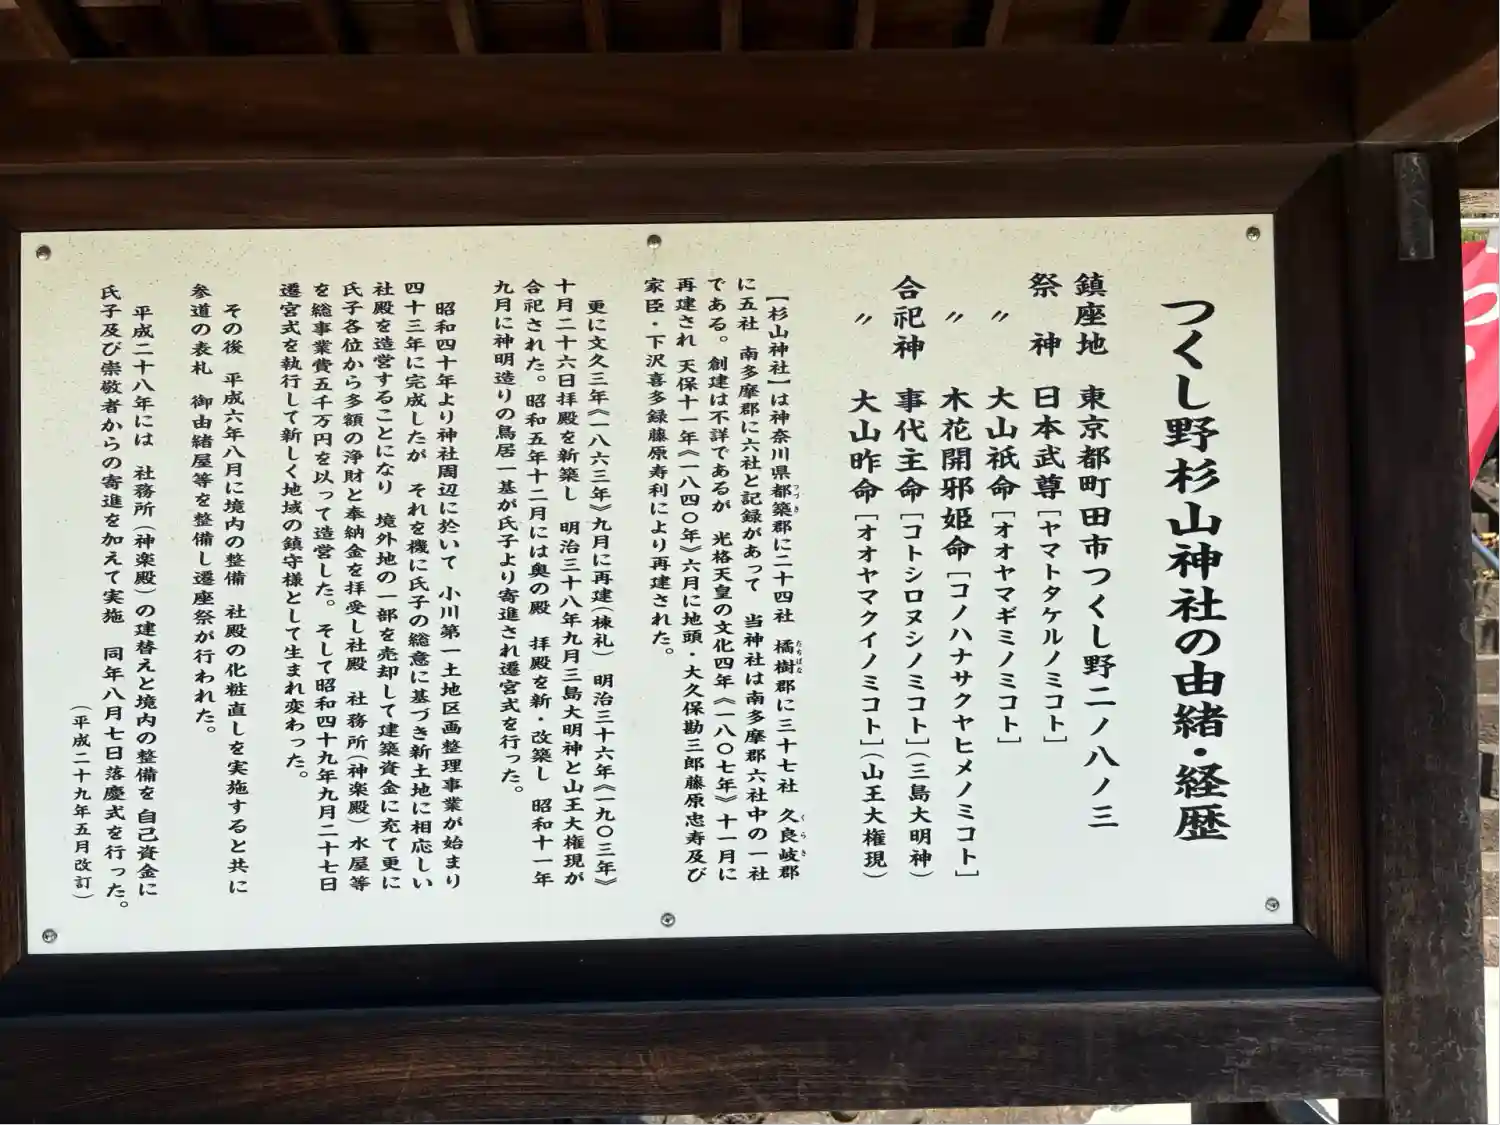 つくし野杉山神社の由緒・経歴
鎮座地　東京都町田市つくし野二ノ八ノ三
祭　神　日本武尊［ヤマトタケルノミコト］
〃　大山祇命［オオヤマギミノミコト］
〃　木花開邪姫命［コノハナサクヤヒメノミコト］
合祀神　事代主命［コトシロヌシノミコト］（三島大明神）
〃　大山昨命［オオヤマクイノミコト］（山王大権現）
【杉山神社】は神奈川県都築郡に二十四社　橘樹郡に三十七社　久良岐郡
に五社　南多摩郡に六社と記録があって　当神社は南多摩郡六社中の一社
である。創建は不詳であるが　光格天皇の文化四年《一八〇七年》十一月に
再建され　天保十一年《一八四〇年》六月に地頭・大久保勘三郎藤原忠寿及び
家臣・下沢喜多録藤原寿利により再建された。
更に文久三年《一八六三年》九月に再建（棟札）明治三十六年《一九〇三年》
十月二十六日拝殿を新築し　明治三十八年九月三島大明神と山王大権現が
合祀された。昭和五年十二月には奥の殿　拝殿を新・改築し　昭和十一年
九月に神明造りの鳥居一基が氏子より寄進され遷宮式を行った。
昭和四十年より神社周辺に於いて　小川第一土地区画整理事業が始まり
四十三年に完成したが　それを機に氏子の総意に基づき新土地に相応しい
社殿を造営することになり　境外地の一部を売却して建築資金に充て更に
氏子各位から多額の浄財と奉納金を拝受し社殿　社務所（神楽殿）水屋等
を総事業費五千万円を以って造営した。そして昭和四十九年九月二十七日
遷宮式を執行して新しく地域の鎮守様として生まれ変わった。
その後　平成六年八月に境内の整備　社殿の化粧直しを実施すると共に
参道の表札　御由緒屋等を整備し遷座祭が行われた。
平成二十八年には　社務所（神楽殿）の建替えと境内の整備を　自己資金に
氏子及び崇敬者からの寄進を加えて実施　同年八月七日落慶式を行った。
（平成二十九年五月改訂）